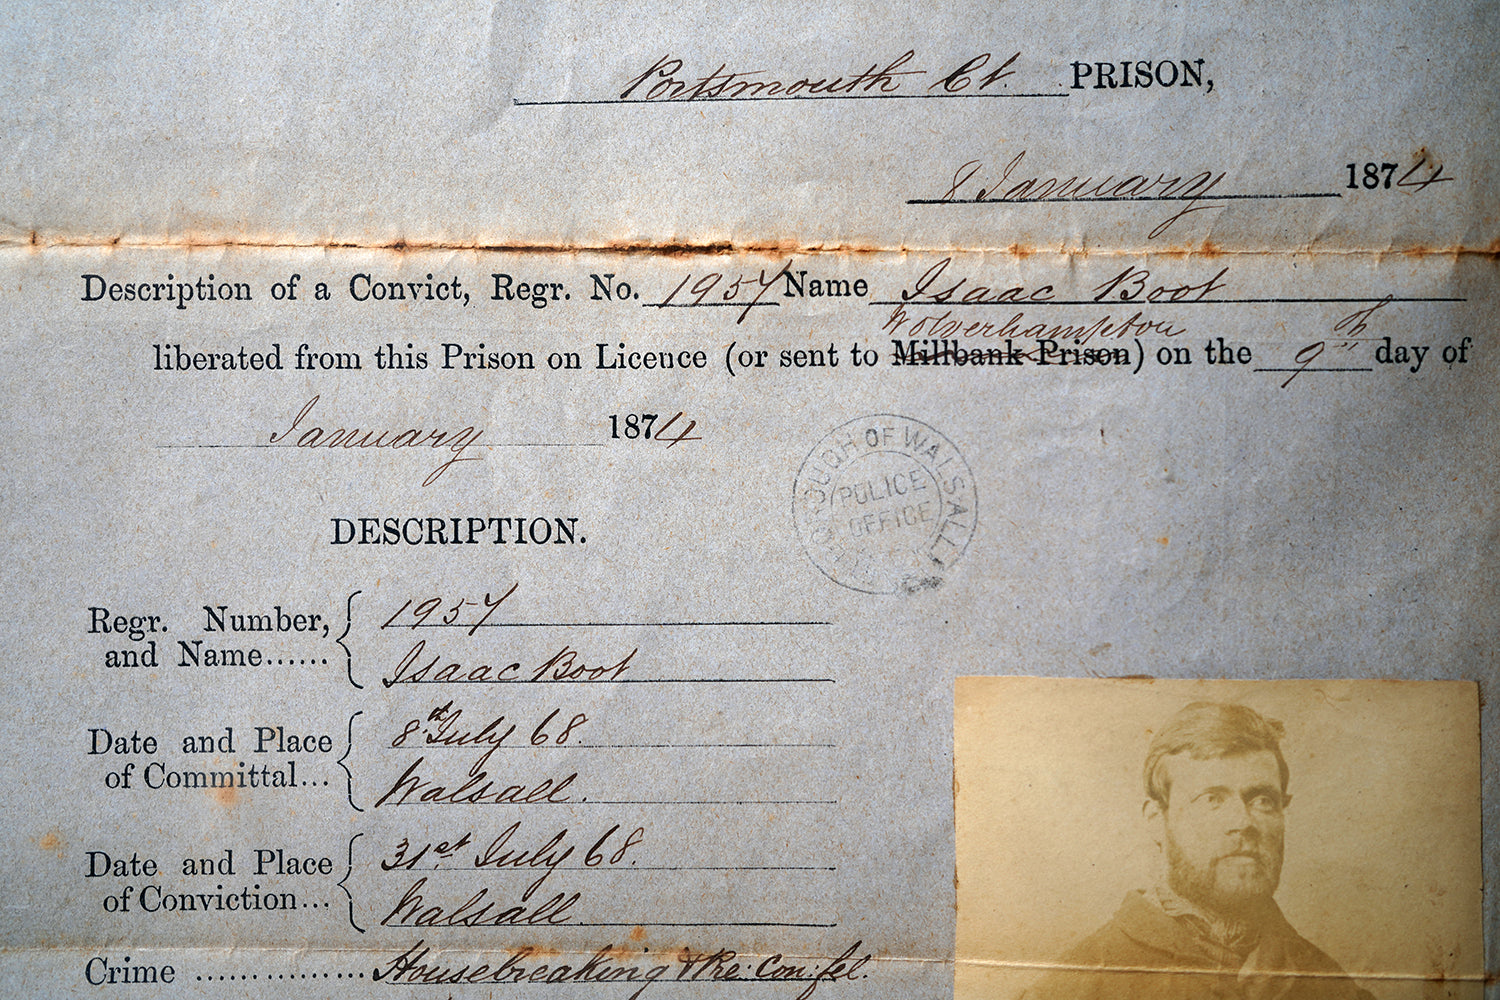 Portsmouth Ct. PRISON,
8 January 1874
Description of a Convict, Regr. No. 1957 Name Isaac Boot
Wolverhampton
liberated from this Prison on Licence (or sent to Millbank Prison) on the 9th day of
January 1874
BOROUGH OF WALSALL
POLICE
OFFICE
DESCRIPTION.
Regr. Number, 1957
and Name...... Isaac Boot
Date and Place 8th July 68.
of Committal... Walsall.
Date and Place 31st July 68.
of Conviction... Walsall
Crime ............... Housebreaking & Re: Con: fel.